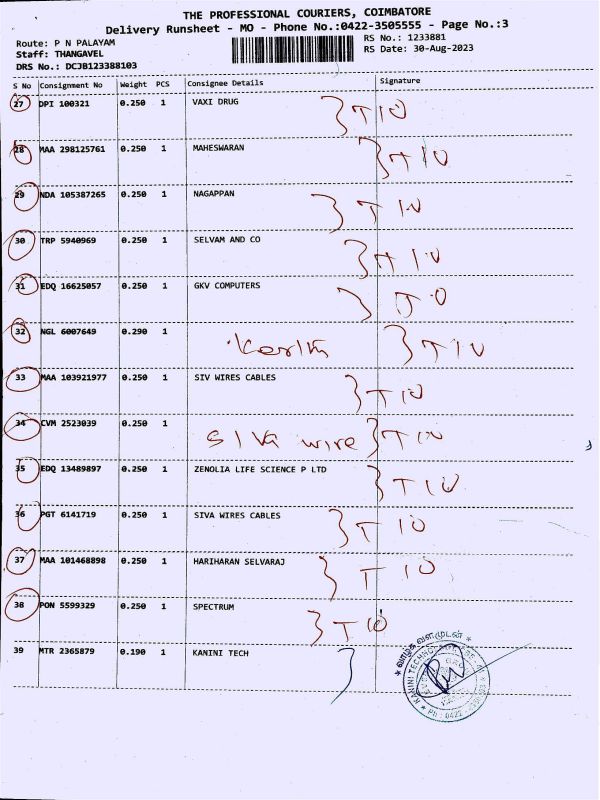 THE PROFESSIONAL COURIERS, COIMBATORE
Delivery Runsheet - MO - Phone No.:0422-3505555 - Page No.:3
Route: P N PALAYAM
RS No.: 1233881
Staff: THANGAVEL
RS Date: 30-Aug-2023
DRS No.: DCJB123388103
S No Consignment No Weight PCS Consignee Details Signature
27 DPI 100321 0.250 1 VAXI DRUG T 10
28 MAA 298125761 0.250 1 MAHESWARAN T 10
29 NDA 105387265 0.250 1 NAGAPPAN T 10
30 TRP 5940969 0.250 1 SELVAM AND CO T 10
31 EDQ 16625057 0.250 1 GKV COMPUTERS
32 NGL 6007649 0.290 1 T 10
33 MAA 103921977 0.250 1 SIV WIRES CABLES T 10
34 CVM 2523039 0.250 1 SIVA wire T 10
35 EDQ 13489897 0.250 1 ZENOLIA LIFE SCIENCE P LTD T 10
36 PGT 6141719 0.250 1 SIVA WIRES CABLES T 10
37 MAA 101468898 0.250 1 HARIHARAN SELVARAJ T 10
38 PON 5599329 0.250 1 SPECTRUM T 10
39 MTR 2365879 0.190 1 KANINI TECH
வாழ்க வளமுடன்